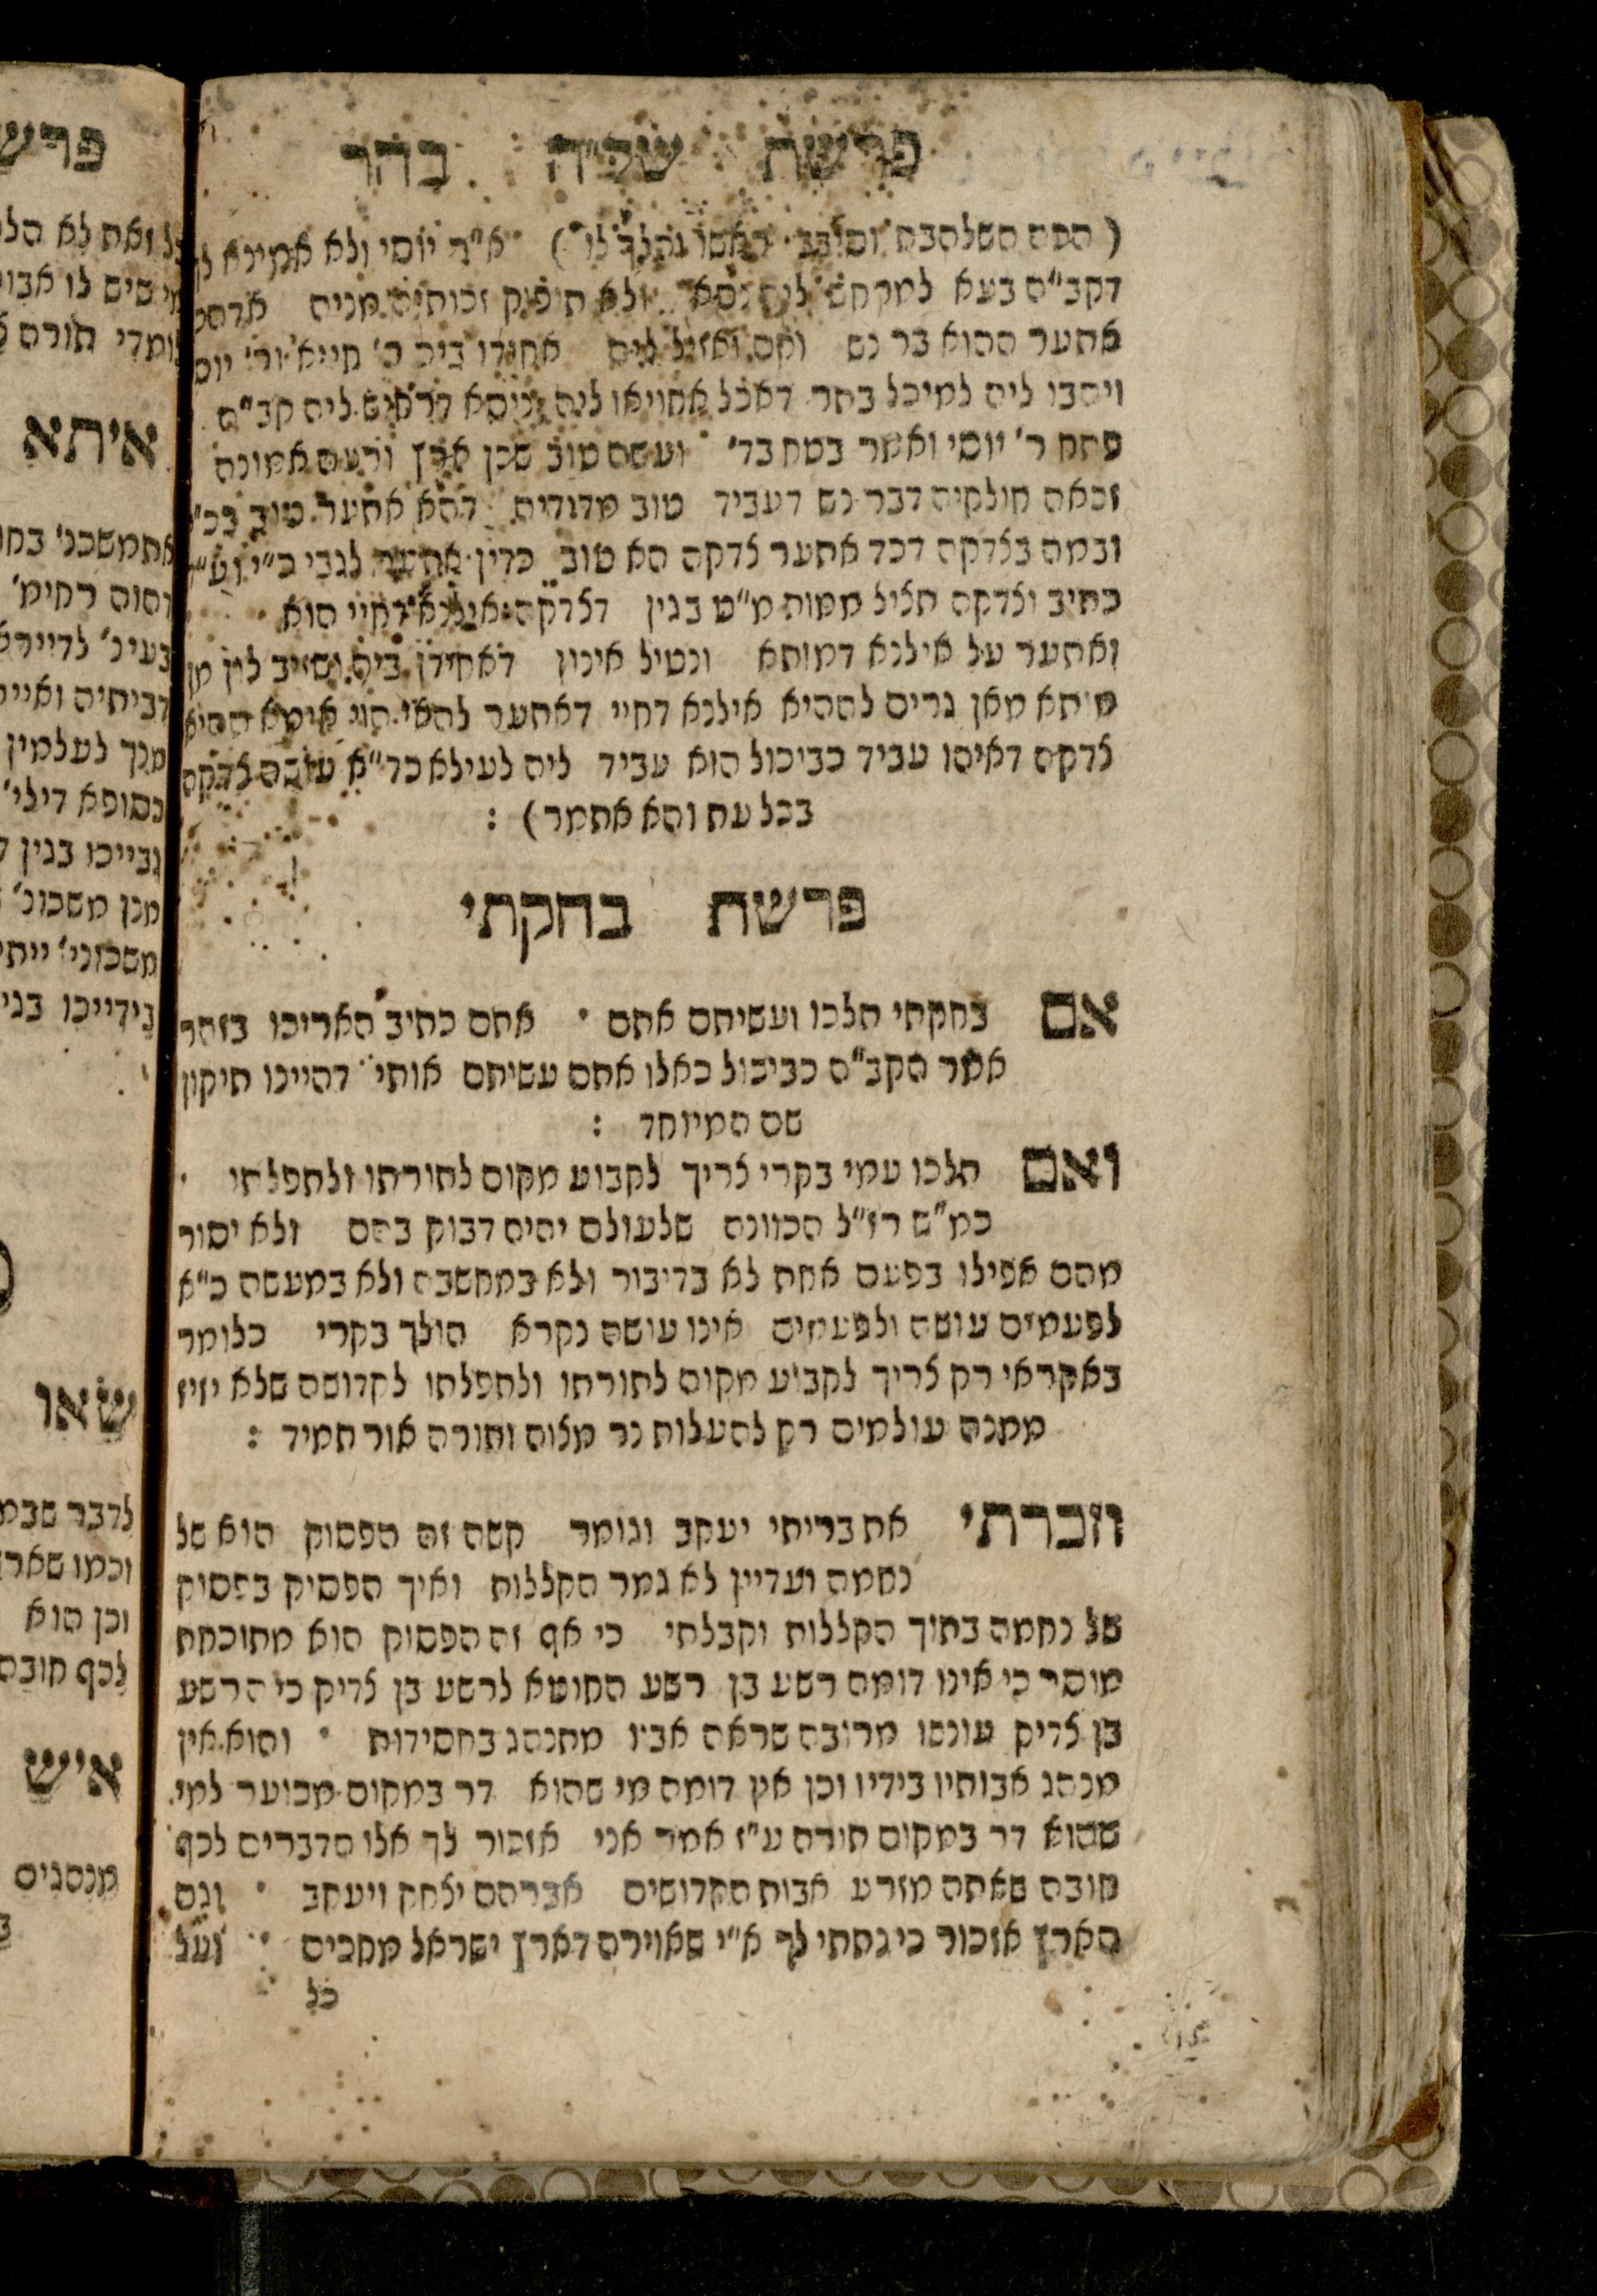 פרשת של״ה בהר
( הפה השלהבת וסיבב) א״ר יוסי ולא אמינא
דקב״ה בעא למרחש ליה נסא ולא תיפוק זכותיה מניה
אתער ההוא בר נש וקם ואזיל ליה אחידו ביה ר׳ חייא ור׳ יוסי
ויהבו ליה למיכל בתר דאכל אחויאו ליה ניסא דרחיש ליה קב״ה
פתח ר׳ יוסי ואמר בטח בד׳ ועשה טוב שכן ארץ ורעה אמונה
זכאה חולקיה דבר נש דעביד טוב מדידיה דהא אתער טוב בכ״י
ובמה בצדקה דכד אתער צדקה הא טוב כדין אתער לגבי כ״י וע״ד
כתיב וצדקה תציל ממות מ״ט בגין דצדקה אילנא דחיי הוא
ואתער על אילנא דמותא ונטיל אינון דאחידן ביה ושזיב לון מן
מיתא מאן גרים לההיא אילנא דחיי דאתער להאי הוי אימא ההיא
צדקה דאיהו עביד כביכול הוא עביד ליה לעילא כד״א עושה צדקה
בכל עת והא אתמר) :
פרשת בחקתי
אם בחקתי תלכו ועשיתם אתם · אתם כתיב האריכו בזהר
אמר הקב״ה כביכול כאלו אתם עשיתם אותי דהיינו תיקון
שם המיוחד :
ואם תלכו עמי בקרי צריך לקבוע מקום לתורתו ולתפלתו ·
כמ״ש רז״ל הכוונה שלעולם יהיה דבוק בהם ולא יסור
מהם אפילו בפעם אחת לא בדיבור ולא במחשבה ולא במעשה כ״א
לפעמים עושה ולפעמים אינו עושה נקרא הולך בקרי כלומר
באקראי רק צריך לקבוע מקום לתורתו ולתפלתו לקדושה שלא יזיז
ממנה עולמים רק להעלות נר מצוה ותורה אור תמיד :
וזכרתי את בריתי יעקב וגומר קשה זה הפסוק הוא של
נחמה ועדיין לא גמר הקללות ואיך הפסיק בפסוק
של נחמה בתוך הקללות וקבלתי כי אף זה הפסוק הוא מתוכחת
מוסר כי אינו דומה רשע בן רשע החוטא לרשע בן צדיק כי הרשע
בן צדיק עונשו מרובה שראה אביו מתנהג בחסידות · והוא אין
מנהג אבותיו בידיו וכן אין דומה מי שהוא דר במקום מבוער למי
שהוא דר במקום תורה ע״ז אמר אני אזכור לך אלו הדברים לכף
חובה שאתה מזרע אבות הקדושים אברהם יצחק ויעקב · וגם
הארץ אזכור כי נתתי לך א״י שאוירה דארץ ישראל מחכים · ועל
כל